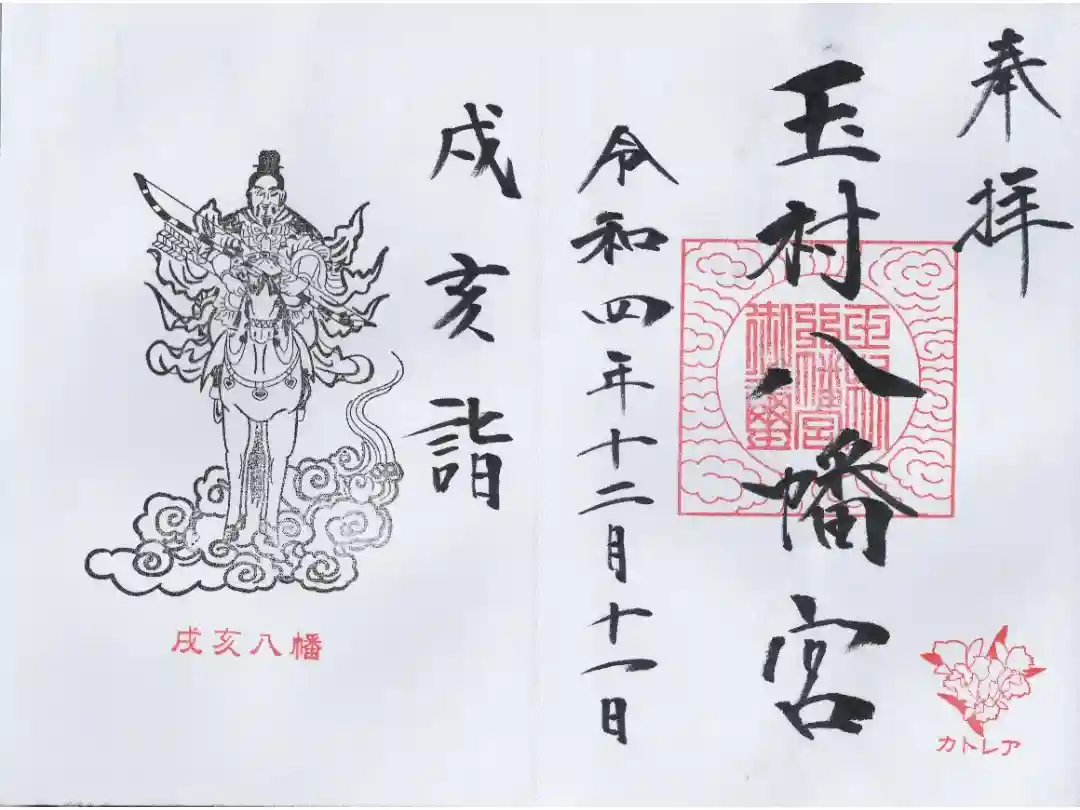 奉拝
玉村八幡宮
令和四年十二月十一日
戌亥詣
戌亥八幡
カトレア
玉村
八幡宮
御璽